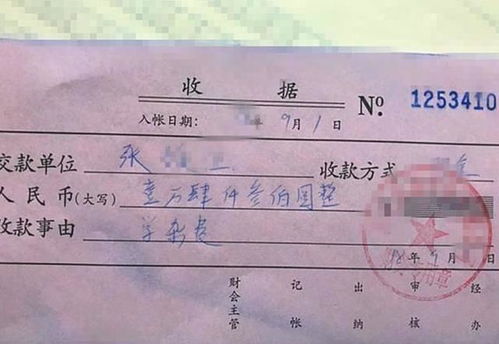 收 据
№ 1253410
入帐日期： 年 9月 1日
交款单位 张 收款方式
人民币(大写) 壹万肆仟叁佰圆整
收款事由 学杂费
年 月
财会主管 记帐 出纳 审核 经办